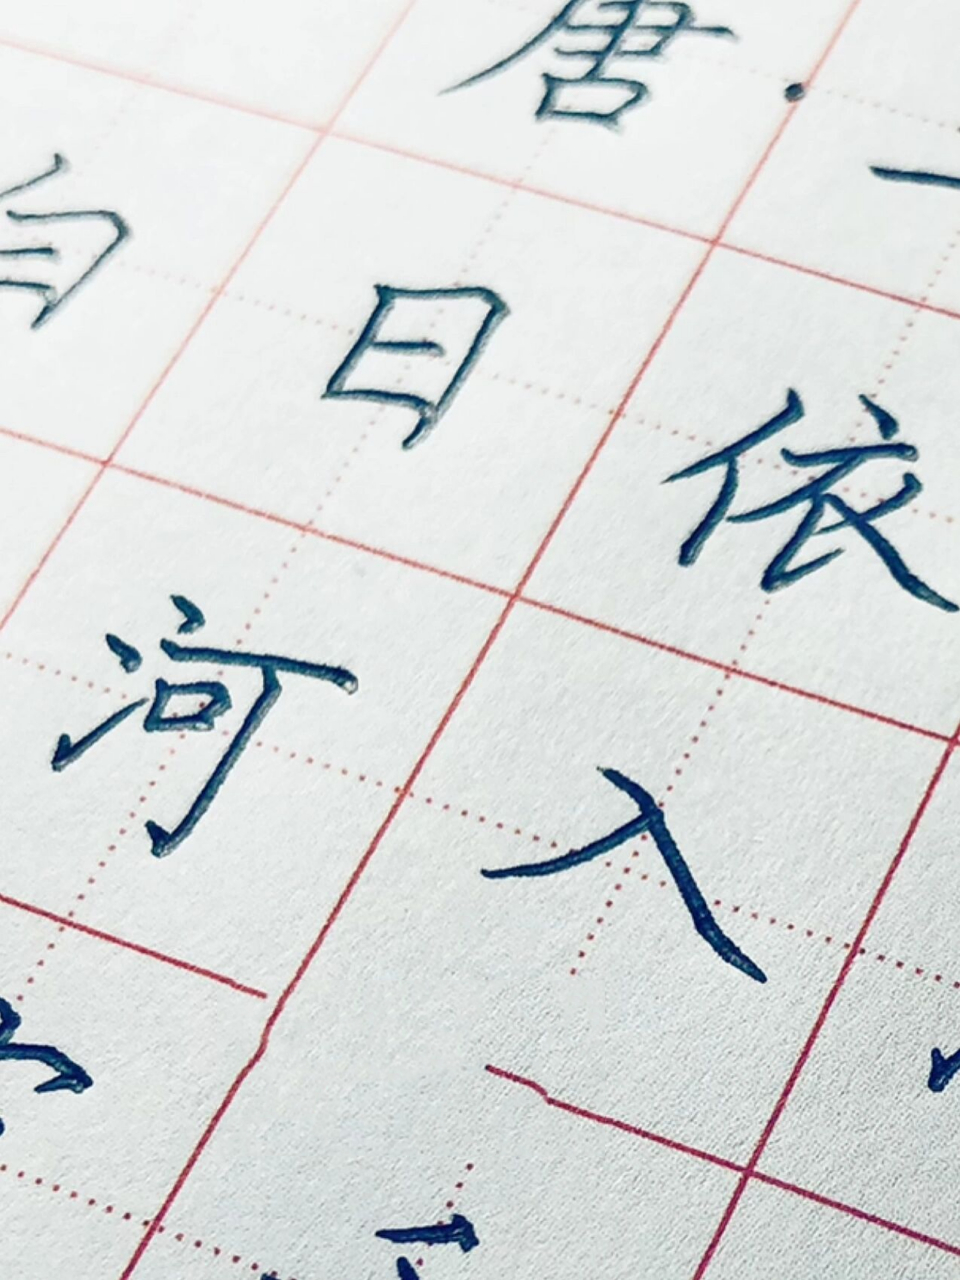 唐·
白日依
河入